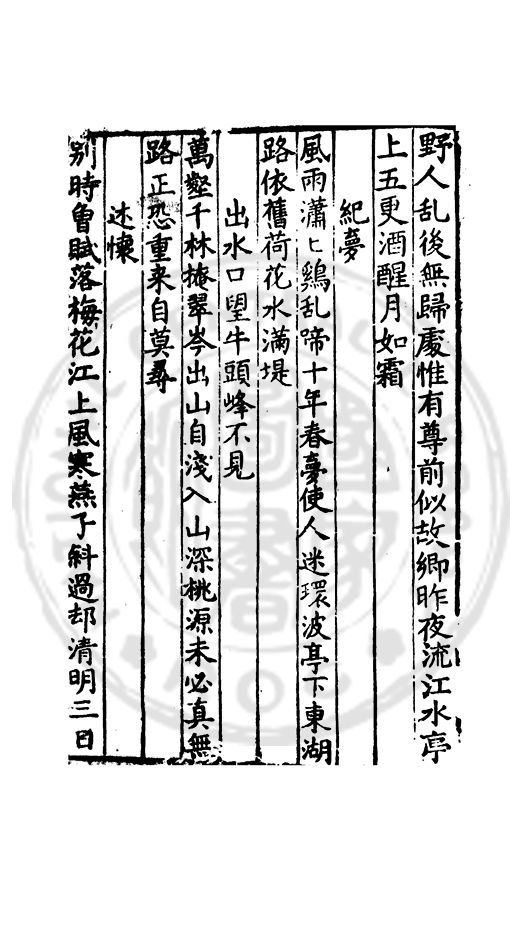 野人乱後無歸處惟有尊前似故鄉昨夜流江水亭
上五更酒醒月如霜
紀夢
風雨瀟〻鷄乱啼十年春夢使人迷環波亭下東湖
路依舊荷花水滿堤
出水口望牛頭峰不見
萬壑千林掩翠岑出山自淺入山深桃源未必真無
路正恐重来自莫尋
述懷
别時曾賦落梅花江上風寒燕子斜過却清明三日